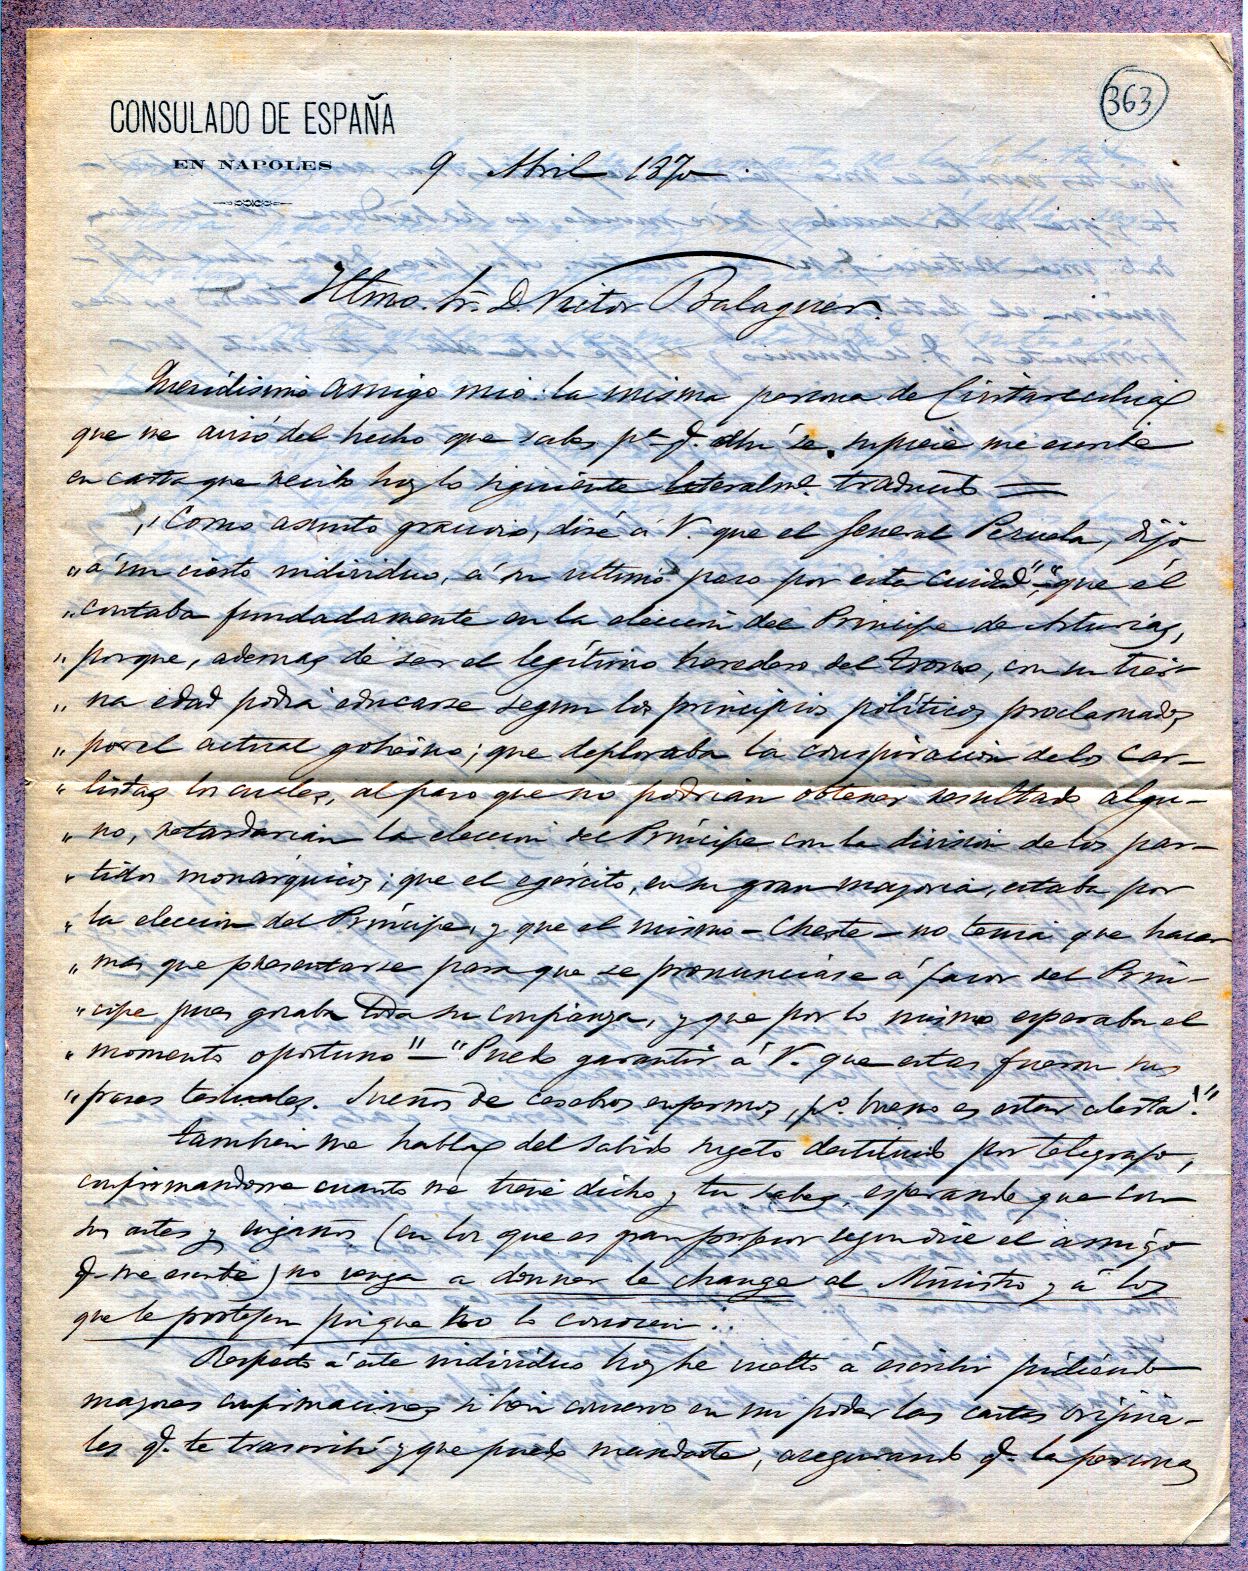 363
CONSULADO DE ESPAÑA
EN NAPOLES
9 Abril 1870.
Iltmo. Sr. D. Victor Balaguer.
Queridisimo amigo mio: la misma persona de Civitavecchia
que me avisó del hecho que sabes pa. q. ahi se supiese me escribe
en carta que recibo hoy lo siguiente literalme. traducido =
"Como asunto gracioso, diré á V. que el General Pezuela, dijo
"á un cierto individuo, á su ultimo paso por esta Ciudad" - "que él
"contaba fundadamente en la eleccion del Principe de Asturias,
"porque, ademas de ser el legítimo heredero del trono, con su tier-
"na edad podrá educarse segun los principios políticos proclamados
"por el actual gobierno; que deploraba la conspiracion de los Car-
"listas los cuales, al paso que no podrian obtener resultado algu-
"no, retardarian la eleccion del Príncipe con la division de los par-
"tidos monárquicos; que el egército, en su gran mayoria, estaba por
"la eleccion del Príncipe, y que el mismo - Cheste - no tenia que hacer
"mas que presentarse para que se pronunciase á favor del Prin-
"cipe pues gozaba toda su confianza, y que por lo mismo esperaba el
"momento oportuno" - "Puedo garantir á V. que estas fueron sus
"frases testuales. Sueños de cerebros enfermos, po. bueno es estar alerta!"
Tambien me habla del sabido sugeto destituido por telegrafo,
confirmandome cuanto me tiene dicho y tu sabes, esperando que con
sus artes y engaños (en los que es gran profesor segun dice el amigo
q. me escribe) no venga a donner le change al Ministro y á los
que le protejen porque no lo conocen.
Respecto á este individuo hoy he vuelto á escribir pidiendo
mayores confirmaciones si bien conservo en mi poder las cartas origina-
les q. te trascribí y que puedo mandarte, asegurando q. la persona